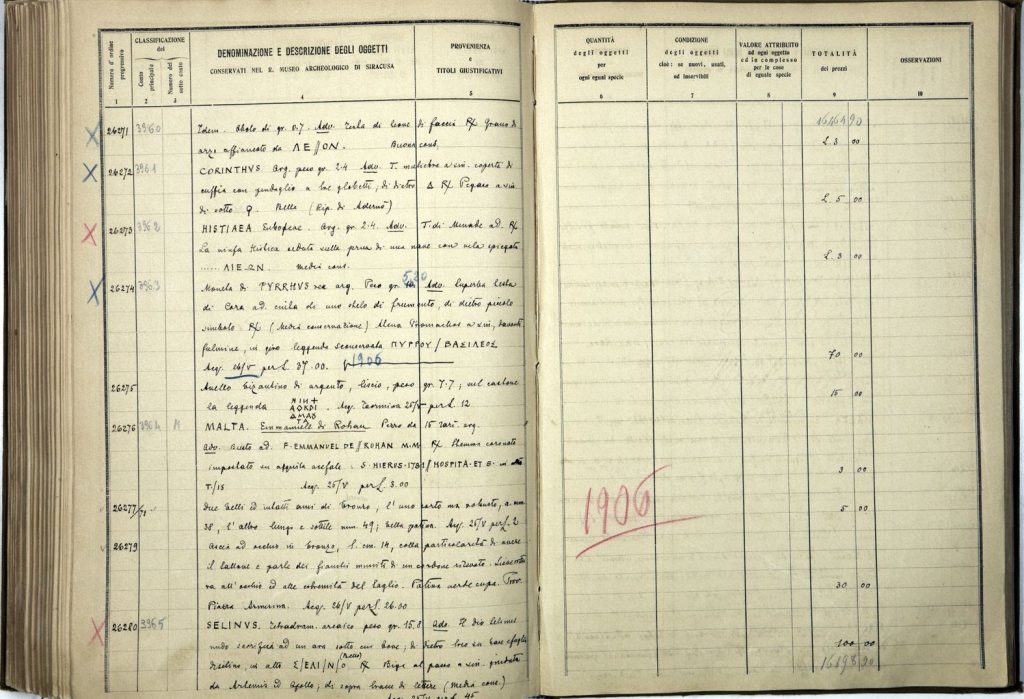 CLASSIFICAZIONE
del
Numero d'ordine progressivo
Conto principale
Numero del sotto conto
DENOMINAZIONE E DESCRIZIONE DEGLI OGGETTI
CONSERVATI NEL R. MUSEO ARCHEOLOGICO DI SIRACUSA
PROVENIENZA
e
TITOLI GIUSTIFICATIVI
1 2 3 4 5
26271 3960 Idem. Obolo di gr. 0.7. Adv. Testa di leone di faccia R/ Grano di
orzo affiancato da ΛΕ//ΟΝ. Buona cons.
26272 3961 CORINTHVS Arg. peso gr. 2.4 Adv. T. muliebre a sin. coperta di
cuffia con pendaglio a tre globetti, di dietro Δ R/ Pegaso a sin
di sotto Ϙ. Bella (Rip. di Adernò)
26273 3962 HISTIAEA Euboeae. Arg. gr. 2.4. Adv. T. di Menade a d. R/
La ninfa Histiea seduta sulla prua di una nave con vela spiegata
..... ΛΙΕΩΝ. media cons.
26274 3963 Moneta di PYRRHVS rex arg. Peso gr. 5,20 Adv. Superba testa
di Cora a d. cinta di uno stelo di frumento, di dietro piccolo
simbolo R/ (Media conservazione) Atena Promachos a sin, davanti
fulmine, in giro leggenda sconservata ΠΥΡΡΟΥ / ΒΑΣΙΛΕΟΣ
Acq. 26/V per L. 37.00. 1906
26275 Anello bizantino di argento, liscio, peso gr. 7.7; nel castone
la leggenda Acq. Taormina 25/V per L. 12
26276 3964 MALTA. Emmanuele di Rohan Pezzo da 15 tarì. arg.
Adv. Busto a d. F. EMMANUEL DE // ROHAN M.M. R/ Stemma coronato
impostato su aquila : S. HIERVS. 1781 // HOSPITA. ET S.
T/15 Acq. 25/V per L. 3.00
26277/ Due belli ed intatti ami di bronzo, l'uno corto ma robusto, a mm
38, l'altro lungo e sottile mm. 49; bella patina. Acq. 25/V per L. 2
26279 Ascia ad occhio in bronzo, l. cm. 14, colla particolarità di avere
il tallone e parte dei fianchi muniti di un cordone rilevato.
all'occhio ed alle estremità del taglio. Patina verde cupa. Prov.
Piazza Armerina. Acq. 26/V per L. 26.00
26280 3965 SELINVS. Tetradram. arcaico peso gr. 15,8 Adv. Il dio Selinus
nudo sacrifica ad un ara sotto cui bove; di dietro toro su base e foglia
di selino, in alto Σ/ΕΛΙ/Ν/Ο (Retro) R/ Biga al passo a sin. guidata
da Artemis ed Apollo; di sopra tracce di lettere (media cons.)
Acq. 25/V per L. 45
QUANTITÀ
degli oggetti
per
ogni egual specie
CONDIZIONE
degli oggetti
cioè: se nuovi, usati,
od inservibili
VALORE ATTRIBUITO
ad ogni oggetto
ed in complesso
per le cose
di eguale specie
TOTALITÀ
dei prezzi
OSSERVAZIONI
6 7 8 9 10
L. 3 00
L. 5 00
L. 3 00
70 00
15 00
3 00
1906
5 00
30 00
100 00